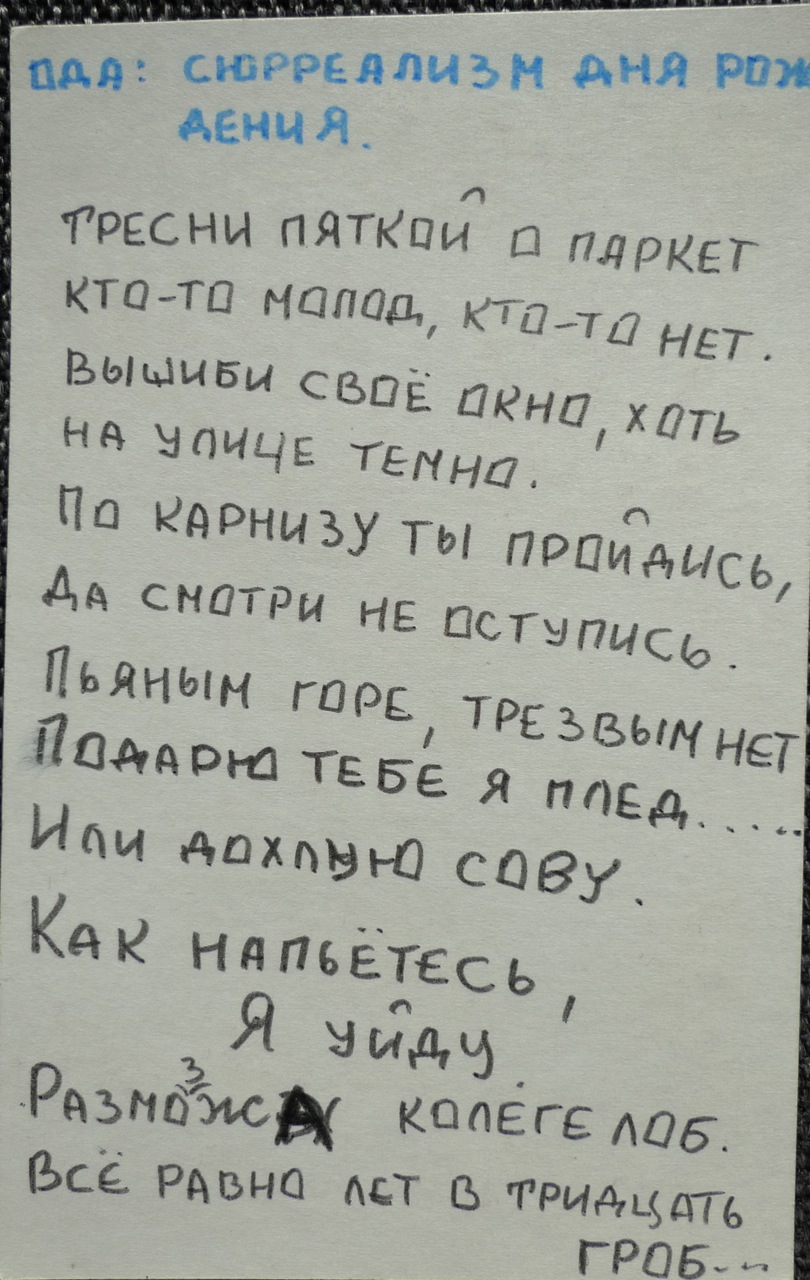 ОДА: СЮРРЕАЛИЗМ ДНЯ РОЖ
ДЕНИЯ.
ТРЕСНИ ПЯТКОЙ О ПАРКЕТ
КТО-ТО МОЛОД, КТО-ТО НЕТ.
ВЫШИБИ СВОЁ ОКНО, ХОТЬ
НА УЛИЦЕ ТЕМНО.
ПО КАРНИЗУ ТЫ ПРОЙДИСЬ,
ДА СМОТРИ НЕ ОСТУПИСЬ.
ПЬЯНЫМ ГОРЕ, ТРЕЗВЫМ НЕТ
ПОДАРЮ ТЕБЕ Я ПЛЕД.....
ИЛИ ДОХЛУЮ СОВУ.
КАК НАПЬЁТЕСЬ,
Я УЙДУ.
КОЛЕГЕ ЛОБ.
ВСЁ РАВНО ЛЕТ В ТРИДЦАТЬ
ГРОБ...